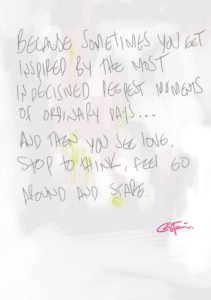 BECAUSE SOMETIMES YOU GET
INSPIRED BY THE MOST
INDECISIVED DEEPEST MOMENTS
OF ORDINARY DAYS...
AND THEN YOU SEE LOVE,
STOP TO THINK, FEEL GO
AROUND AND STARE.